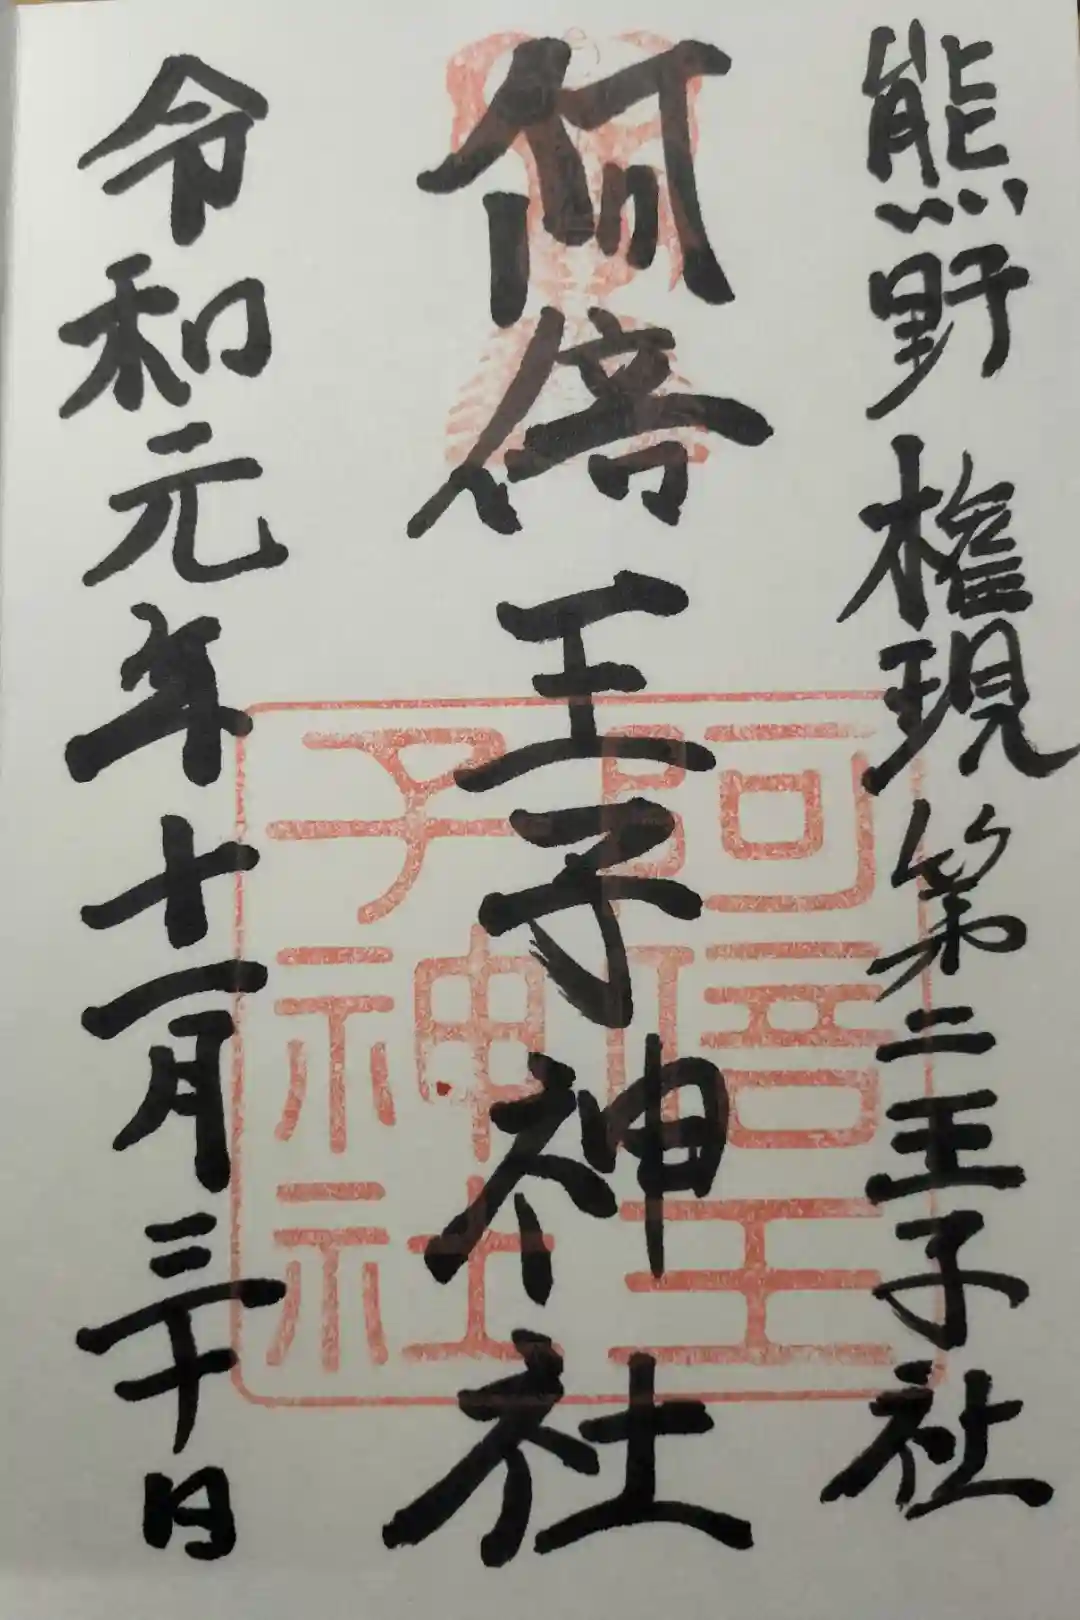 熊野権現第二王子社
阿倍王子神社
令和元年十一月三十日
阿倍王
子神社